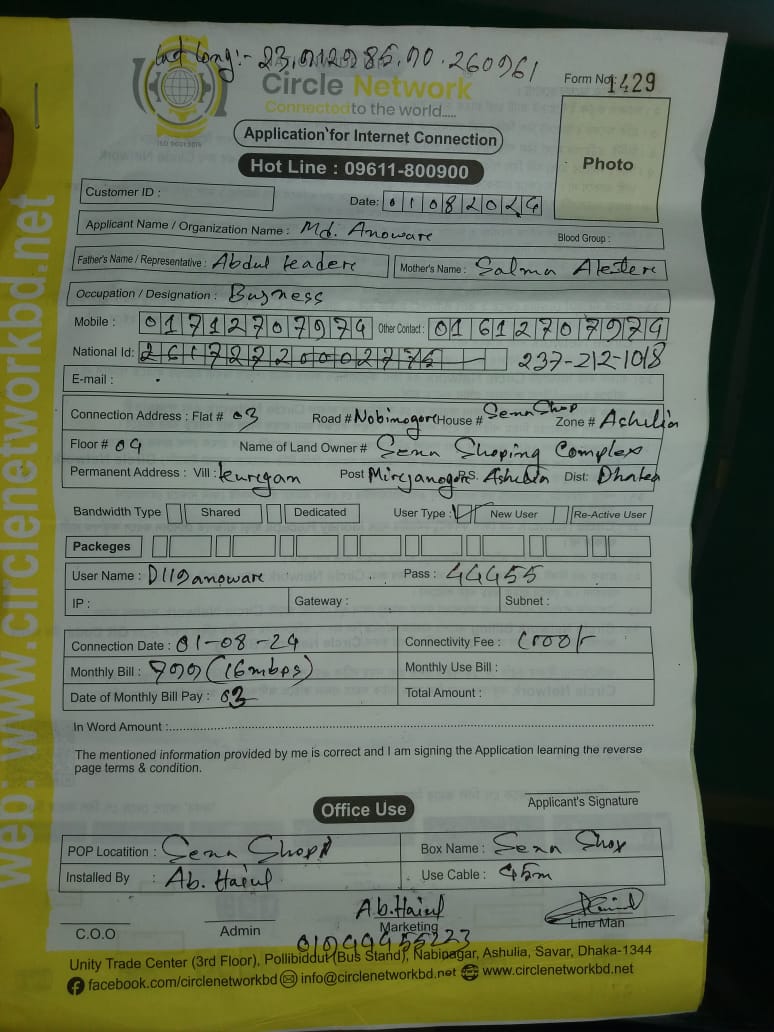 Lat Long:- 23.912985.90.260961
Circle Network
Connected to the world.....
ISO 9001:2015
Form No: 1429
Application for Internet Connection
Photo
Hot Line : 09611-800900
Customer ID :
Date: 01082024
Applicant Name / Organization Name : Md. Anoware
Blood Group :
Father's Name / Representative : Abdul
Mother's Name : Salma
Occupation / Designation : Busness
Mobile : 01712707974 Other Contact : 01612707974
National Id: 237-212-1018
E-mail :
Connection Address : Flat # 03 Road # Nobinogore House # Sena Shop Zone # Ashulia
Floor # 04 Name of Land Owner # Sena Shoping Complex
Permanent Address : Vill : Post P.S. Ashulia Dist: Dhaka
Bandwidth Type Shared Dedicated User Type : New User Re-Active User
Packeges
User Name : D119anoware Pass : 44455
IP : Gateway : Subnet :
Connection Date : 01-08-24 Connectivity Fee :
Monthly Bill : (16mbps) Monthly Use Bill :
Date of Monthly Bill Pay : 03 Total Amount :
In Word Amount :
The mentioned information provided by me is correct and I am signing the Application learning the reverse
page terms & condition.
Applicant's Signature
Office Use
POP Locatition : Sena Shop Box Name : Sena Shop
Installed By : Ab. Use Cable :
Ab.
C.O.O Admin Marketing Line Man
Unity Trade Center (3rd Floor), Pollibiddut (Bus Stand), Nabinagar, Ashulia, Savar, Dhaka-1344
facebook.com/circlenetworkbd info@circlenetworkbd.net www.circlenetworkbd.net
web: www.circlenetworkbd.net